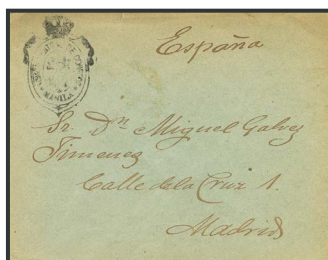 España
Sr. Dn Miguel Galvez
Jimenez
Calle de la Cruz 1.
Madrid